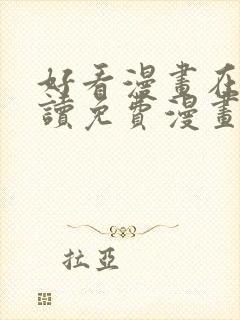 好看漫畫在
讀免費漫畫
拉亞